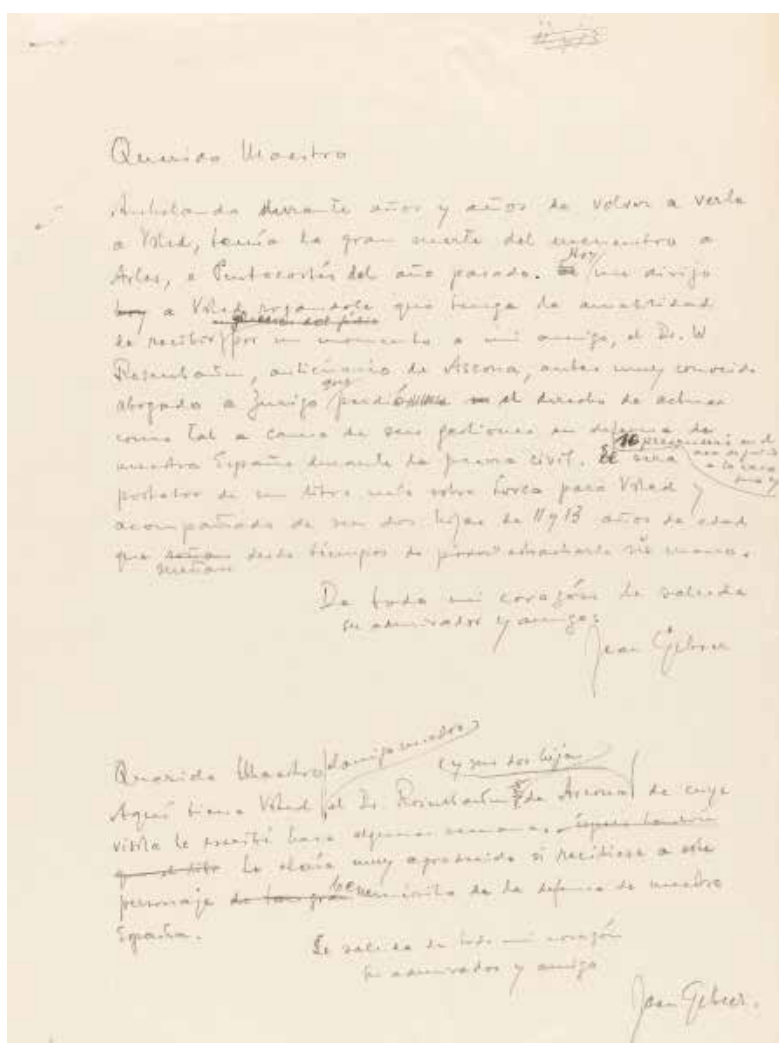 Querido Maestro
Anhelando durante años y años de volver a verle
a Usted, tenía la gran suerte del encuentro a
Arles, a Pentecostés del año pasado. Hoy me dirijo
hoy a Usted rogandole que tenga la amabilidad
de recibir por un momento a mi amigo, el Dr. W.
Rosenbaum, anticuario de Ascona, antes muy conocido
abogado a Zurigo que perdió el derecho de actuar
como tal a causa de sus gestiones en defensa de
nuestra España durante la guerra civil. El será
portador de un libro mío sobre Lorca para Usted y
acompañado de sus dos hijas de 11 y 13 años de edad
que sueñan desde tiempos de poder estrecharle su mano.
De todo mi corazón le saluda
su admirador y amigo
Jean Gebser
Querido Maestro el amigo nuestro
(y sus dos hijas
Aquí tiene Usted el Dr. Rosenbaum de Ascona de cuya
visita le escribí hace algunas semanas.
Le estaría muy agradecido si recibiese a este
personaje benemérito de la defensa de nuestra
España.
Le saluda de todo mi corazón
su admirador y amigo
Jean Gebser.